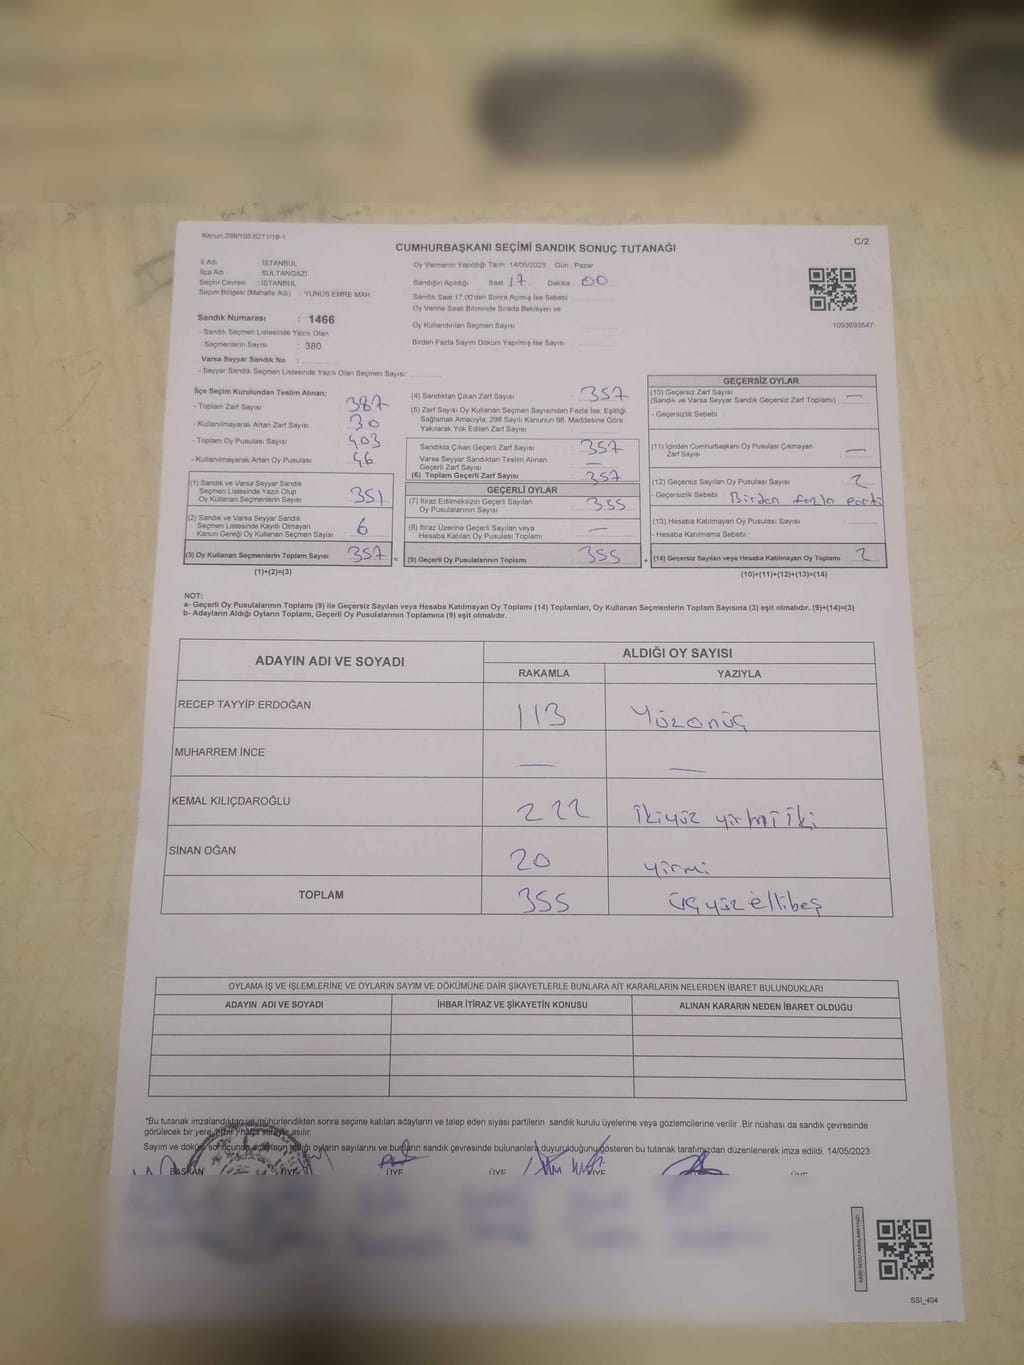 Kanun,298/105;6271/18-1
CUMHURBAŞKANI SEÇİMİ SANDIK SONUÇ TUTANAĞI
C/2
İl Adı : İSTANBUL
İlçe Adı : SULTANGAZİ
Seçim Çevresi : İSTANBUL
Seçim Bölgesi (Mahalle Adı) : YUNUS EMRE MAH
Sandık Numarası : 1466
- Sandık Seçmen Listesinde Yazılı Olan
Seçmenlerin Sayısı : 380
Varsa Seyyar Sandık No :
- Seyyar Sandık Seçmen Listesinde Yazılı Olan Seçmen Sayısı:
Oy Vermenin Yapıldığı Tarih 14/05/2023 Gün : Pazar
Sandığın Açıldığı Saat 17 Dakika 00
Sandık Saat 17:00'den Sonra Açılmış İse Sebebi
Oy Verme Saati Bitiminde Sırada Bekleyen ve
Oy Kullandırılan Seçmen Sayısı
Birden Fazla Sayım Döküm Yapılmış İse Sayısı
1093693547
İlçe Seçim Kurulundan Teslim Alınan;
- Toplam Zarf Sayısı 387
- Kullanılmayarak Artan Zarf Sayısı 30
- Toplam Oy Pusulası Sayısı 403
- Kullanılmayarak Artan Oy Pusulası 46
(1) Sandık ve Varsa Seyyar Sandık
Seçmen Listesinde Yazılı Olup
Oy Kullanan Seçmenlerin Sayısı 351
(2) Sandık ve Varsa Seyyar Sandık
Seçmen Listesinde Kayıtlı Olmayan
Kanun Gereği Oy Kullanan Seçmen Sayısı 6
(3) Oy Kullanan Seçmenlerin Toplam Sayısı 357 =
(1)+(2)=(3)
(4) Sandıktan Çıkan Zarf Sayısı 357
(5) Zarf Sayısı Oy Kullanan Seçmen Sayısından Fazla İse, Eşitliği
Sağlamak Amacıyla, 298 Sayılı Kanunun 98. Maddesine Göre
Yakılarak Yok Edilen Zarf Sayısı
Sandıkta Çıkan Geçerli Zarf Sayısı 357
Varsa Seyyar Sandıktan Teslim Alınan
Geçerli Zarf Sayısı —
(6) Toplam Geçerli Zarf Sayısı 357
GEÇERLİ OYLAR
(7) İtiraz Edilmeksizin Geçerli Sayılan
Oy Pusulasının Sayısı 355
(8) İtiraz Üzerine Geçerli Sayılan veya
Hesaba Katılan Oy Pusulası Toplamı —
(9) Geçerli Oy Pusulalarının Toplamı 355 +
GEÇERSİZ OYLAR
(10) Geçersiz Zarf Sayısı —
(Sandık ve Varsa Seyyar Sandık Geçersiz Zarf Toplamı)
- Geçersizlik Sebebi :
(11) İçinden Cumhurbaşkanı Oy Pusulası Çıkmayan
Zarf Sayısı —
(12) Geçersiz Sayılan Oy Pusulası Sayısı 2
- Geçersizlik Sebebi : Birden fazla parti
(13) Hesaba Katılmayan Oy Pusulası Sayısı
- Hesaba Katılmama Sebebi :
(14) Geçersiz Sayılan veya Hesaba Katılmayan Oy Toplamı 2
(10)+(11)+(12)+(13)=(14)
NOT:
a- Geçerli Oy Pusulalarının Toplamı (9) ile Geçersiz Sayılan veya Hesaba Katılmayan Oy Toplamı (14) Toplamları, Oy Kullanan Seçmenlerin Toplam Sayısına (3) eşit olmalıdır. (9)+(14)=(3)
b- Adayların Aldığı Oyların Toplamı, Geçerli Oy Pusulalarının Toplamına (9) eşit olmalıdır.
ADAYIN ADI VE SOYADI
ALDIĞI OY SAYISI
RAKAMLA YAZIYLA
RECEP TAYYİP ERDOĞAN 113 Yüzonüç
MUHARREM İNCE — —
KEMAL KILIÇDAROĞLU 222 İkiyüz yirmi iki
SİNAN OĞAN 20 yirmi
TOPLAM 355 üçyüz ellibeş
OYLAMA İŞ VE İŞLEMLERİNE VE OYLARIN SAYIM VE DÖKÜMÜNE DAİR ŞİKAYETLERLE BUNLARA AİT KARARLARIN NELERDEN İBARET BULUNDUKLARI
ADAYIN ADI VE SOYADI İHBAR İTİRAZ VE ŞİKAYETİN KONUSU ALINAN KARARIN NEDEN İBARET OLDUĞU
*Bu tutanak imzalandıktan ve mühürlendikten sonra seçime katılan adayların ve talep eden siyasi partilerin sandık kurulu üyelerine veya gözlemcilerine verilir .Bir nüshası da sandık çevresinde
görülecek bir yere, bir hafta süreyle asılır.
Sayım ve döküm sonucunda adayların aldığı oyların sayılarını ve bunların sandık çevresinde bulunanlara duyurulduğunu gösteren bu tutanak tarafımızdan düzenlenerek imza edildi. 14/05/2023
BAŞKAN ÜYE ÜYE ÜYE ÜYE
SSI_404